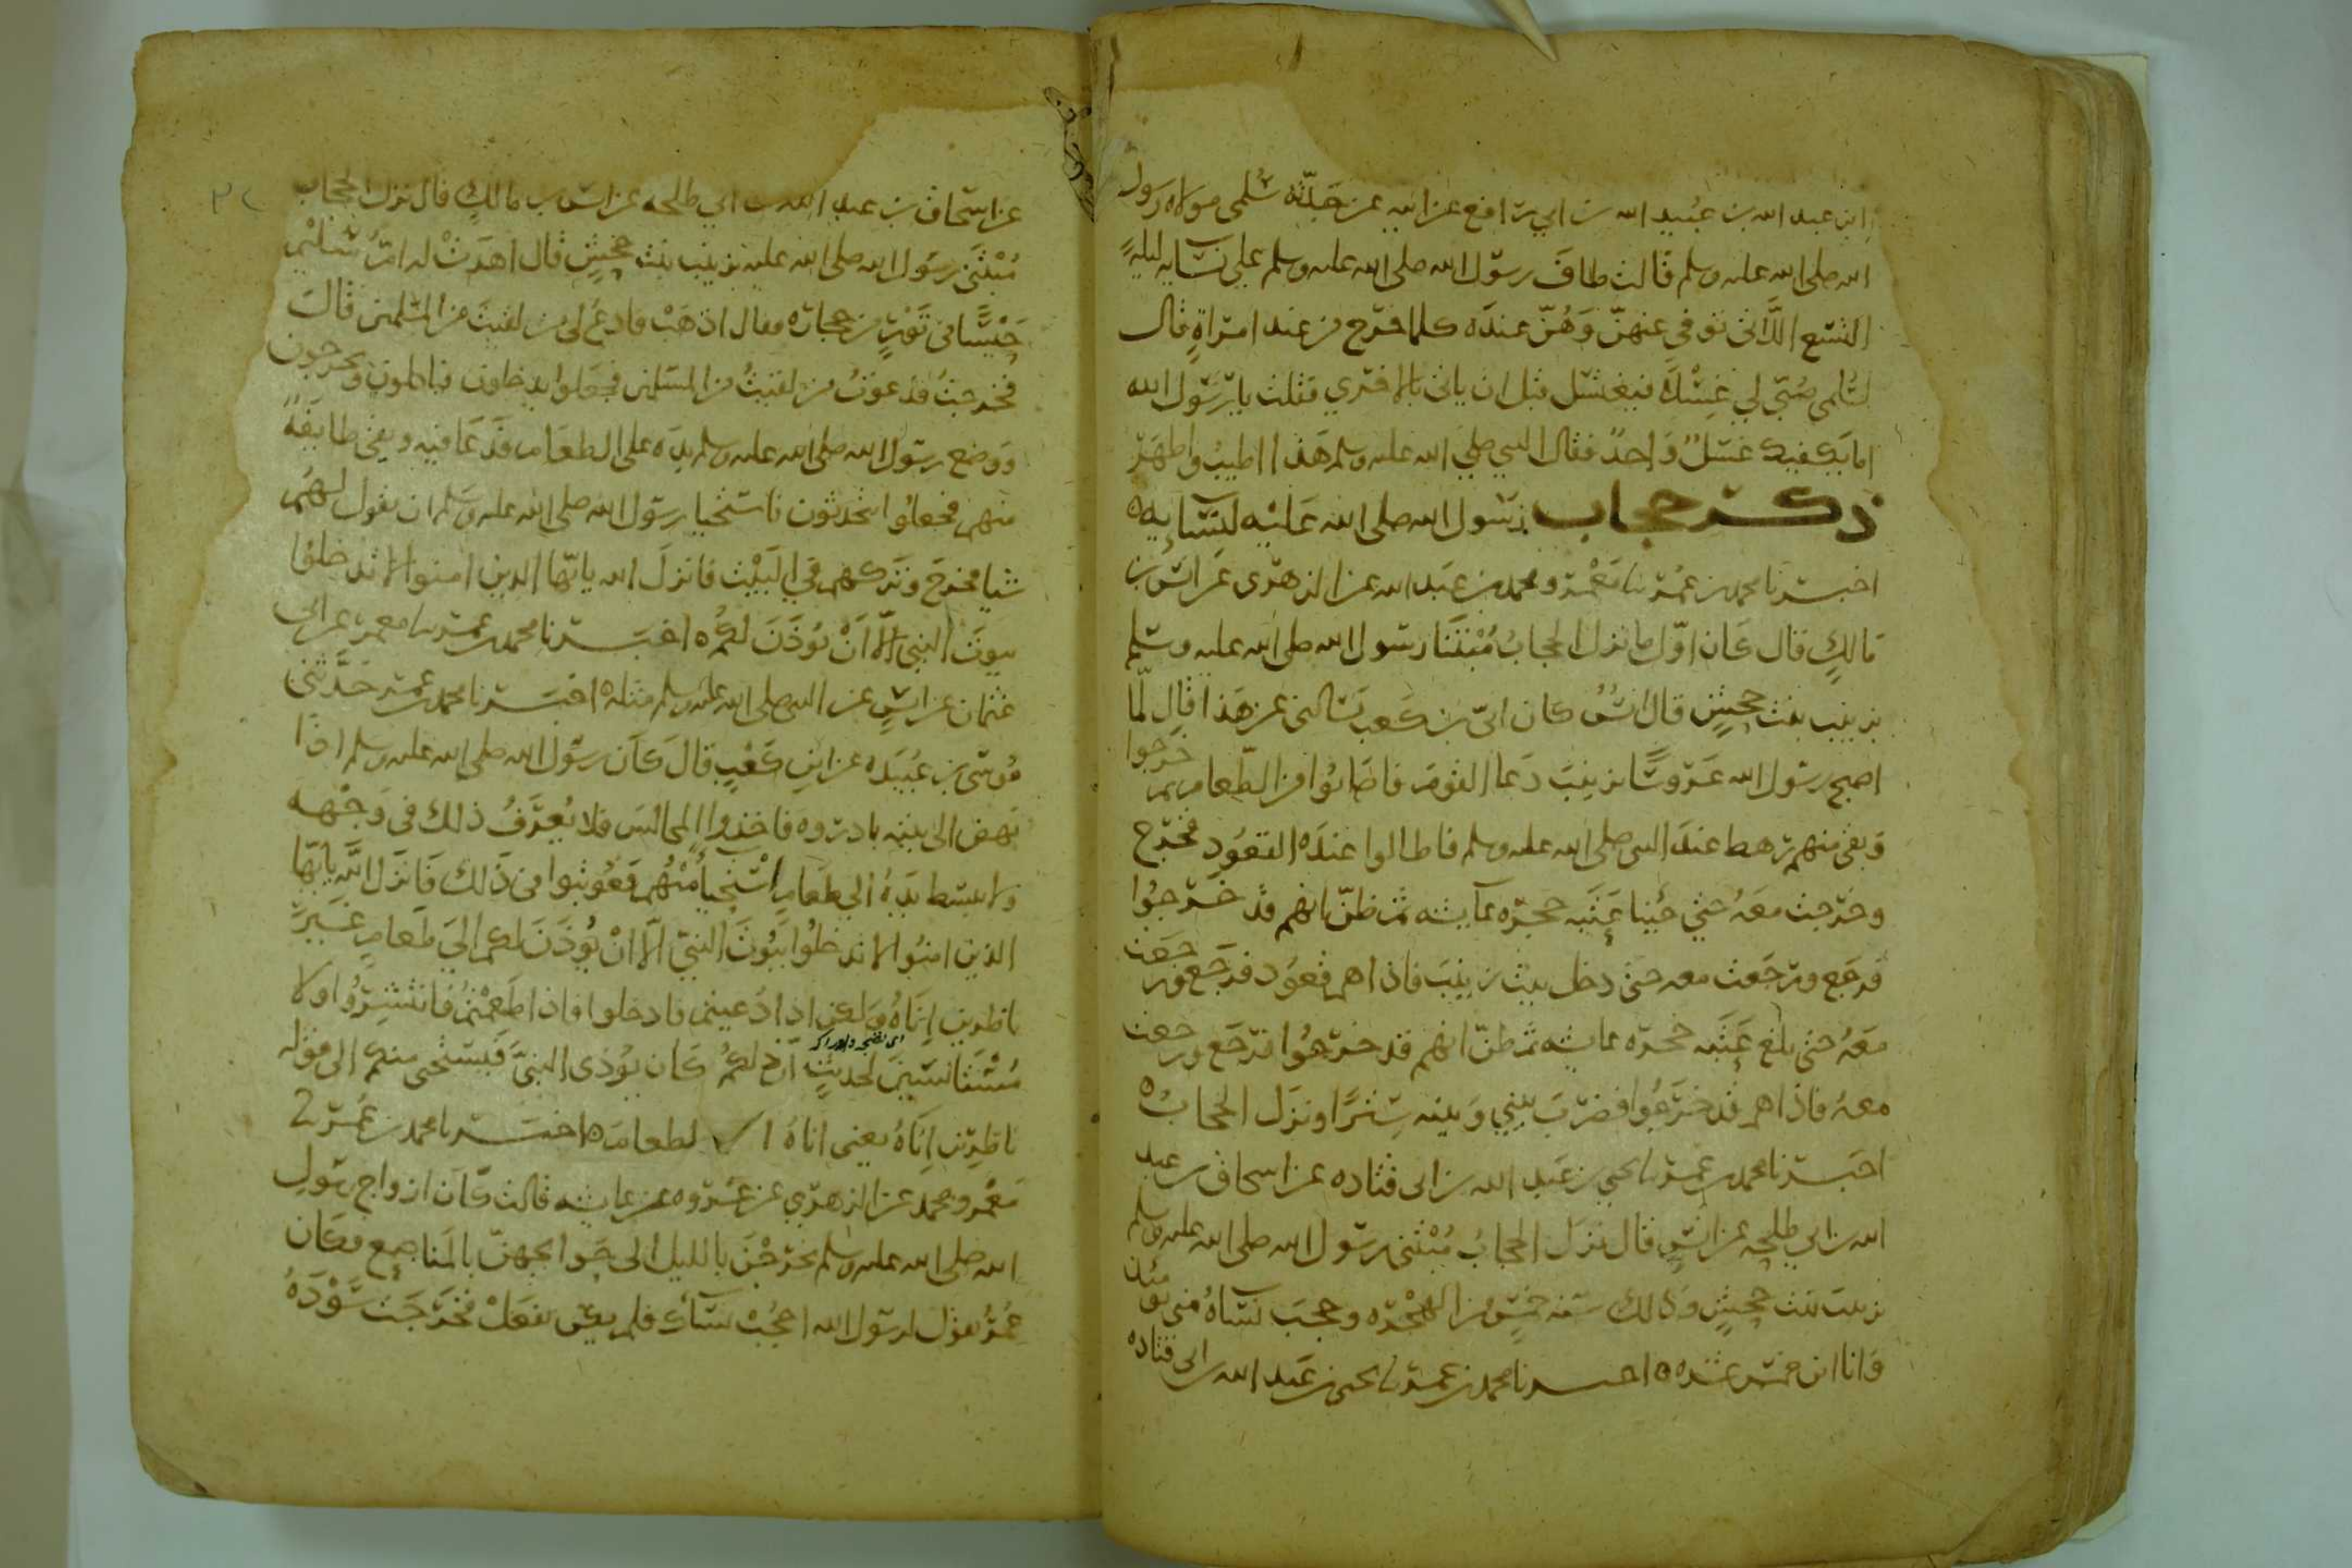 ابن عبد الله بن عبيد الله بن ابي رافع عن ابيه عن جدته سلمى مولاة رسول
الله صلى الله عليه وسلم قالت طاف رسول الله صلى الله عليه وسلم على نسايه ليلة
التسع اللاتي توفي عنهن وهن عنده كلما خرج من عند امراة قال
لسلمى صبي لي غسلا فيغتسل قبل ان ياتي الاخري فقلت يا رسول الله
اما يكفيك غسل واحد فقال النبي صلى الله عليه وسلم هذا اطيب واطهر
ذكر حجاب رسول الله صلى الله عليه لنسايه
اخبرنا محمد بن عمر نا معمر ومحمد بن عبد الله عن الزهري عن انس بن
مالك قال كان اول ما نزل الحجاب مبتنا رسول الله صلى الله عليه وسلم
بزينب بنت جحش قال انس كان ابي بن كعب يسالني عن هذا قال لما
اصبح رسول الله عروسا بزينب دعا القوم فاصابوا من الطعام ثم خرجوا
وبقي منهم رهط عند النبي صلى الله عليه وسلم فاطالوا عنده القعود فخرج
وخرجت معه حتي جينا عتبه حجره عايشه ثم ظن انهم قد خرجوا
فرجع ورجعت معه حتى دخل بيت زينب فاذا هم قعود فرجع ورجعت
معه حتى بلغ عتبه حجره عايشه ثم ظن انهم قد خرجوا فرجع ورجعت
معه فاذا هم قد خرجوا فضرب بيني وبينه سترا ونزل الحجاب
اخبرنا محمد بن عمر نا يحيي بن عبد الله بن ابي قتاده عن اسحاق بن عبد
الله بن ابي طلحه عن انس قال نزل الحجاب مبتنى رسول الله صلى الله عليه وسلم
زينب بنت جحش وذلك سنه خمس من الهجره وحجب نساه مني يومئذ
وانا ابن خمس عشره اخبرنا محمد بن عمر نا يحيى بن عبد الله بن ابي قتاده
عن اسحاق بن عبد الله بن ابي طلحه عن انس بن مالك قال نزل الحجاب
مبتنى رسول الله صلى الله عليه بزينب بنت جحش قال اهدت له ام سليم
حيسا في تور من حجاره فقال اذهب فادع لي من لقيت من المسلمين قال
فخرجت فدعوت من لقيت من المسلمين فجعلوا يدخلون فياكلون ويخرجون
ووضع رسول الله صلى الله عليه وسلم يده على الطعام فدعا فيه وبقي طايفة
منهم فجعلوا يتحدثون فاستحيا رسول الله صلى الله عليه وسلم ان يقول لهم
شيا فخرج وتركهم في البيت فانزل الله يايها الذين امنوا لا تدخلوا
بيوت النبي الا ان يوذن لكم اخبرنا محمد بن عمر نا معمر عن ابي
عثمان عن انس عن النبي صلى الله عليه وسلم مثله اخبرنا محمد بن عمر حدثني
موسى بن عبيده عن ابن كعب قال كان رسول الله صلى الله عليه وسلم اذا
نهض الى بيته بادروه فاخذوا المجالس فلا يعرف ذلك في وجهه
ولا يبسط يده الي طعام استحيا منهم فعوتبوا في ذلك فانزل الله يايها
الذين امنوا لا تدخلوا بيوت النبي الا ان يوذن لكم الى طعام غير
ناظرين اناه ولكن اذا دعيتم فادخلوا فاذا طعمتم فانتشروا ولا
مستانسين لحديث ان ذلكم كان يوذي النبي فيستحي منكم الى قوله
ناظرين اناه يعني اناه الطعام اخبرنا محمد بن عمر
معمر ومحمد عن الزهري عن عروه عن عايشه قالت كان ازواج رسول
الله صلى الله عليه وسلم يخرجن بالليل الى حوايجهن بالمناصع فكان
عمر يقول لرسول الله احجب نساك فلم يكن يفعل فخرجت سوده